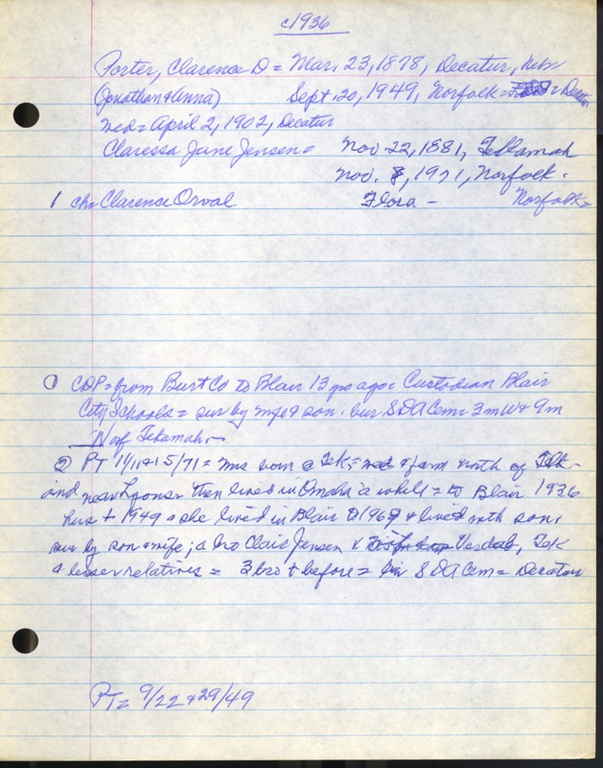 c1936
Porter, Clarence D = Mar. 23, 1878, Decatur, Neb
(Jonathan & Anna) Sept. 20, 1949, Norfolk = Decatur
Med = April 2, 1902, Decatur
Claressa June Jensen = Nov 22, 1881, Tekamah
Nov. 8, 1971, Norfolk.
1 ch = Clarence Orval Flora - Norfolk =
① CDP = from Burt Co to Blair 13 yrs ago = Custodian Blair
City Schools = sur by wife & son. bur. SDA Cem = 3m W & 9m
Nof Tekamah -
② PT 11/11 & 15/71 = mrs born @ Tek = & farm north of Tek -
and near Lyons = then lived in Omaha a while = to Blair 1936
hus + 1949 & she lived in Blair 1969 & lived with son,
sur by son & wife; a bro Clair Jensen & Verdel, Tek
& lesser relatives = 3 bro + before = bur SDA Cem = Decatur
PT = 9/22 & 29/49